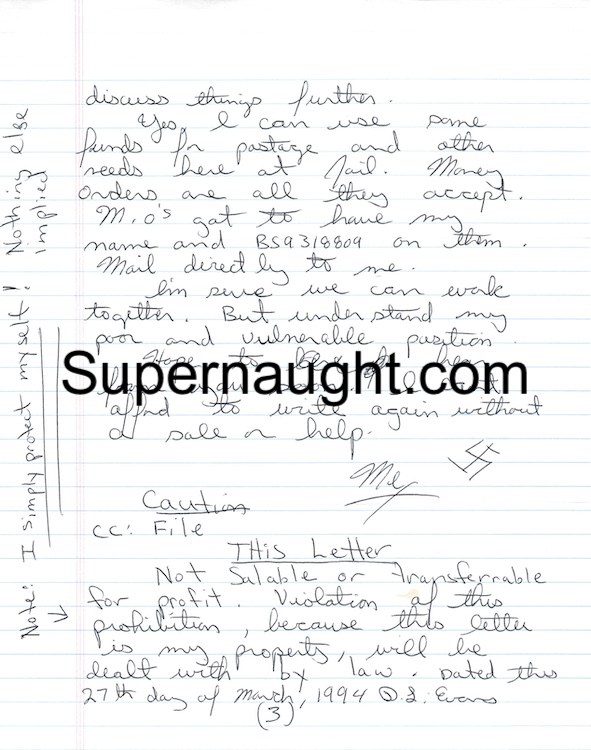 discuss things further.
Yes, I can use some
funds for postage and other
needs here at Jail. Money
orders are all they accept.
M.O's got to have my
name and BS9318809 on them.
Mail directly to me.
I'm sure we can work
together. But understand my
poor and vulnerable position.
Hope to hear
Supernaught.com
afford to write again without
a sale or help.
Me
Caution
cc: File
THis Letter
Not Salable or transferrable
for profit. Violation of this
prohibition, because this letter
is my property, will be
dealt with by law. Dated this
27th day of March, 1994 D.L. Evans
(3)
Note: I simply protect myself! Nothing else
implied